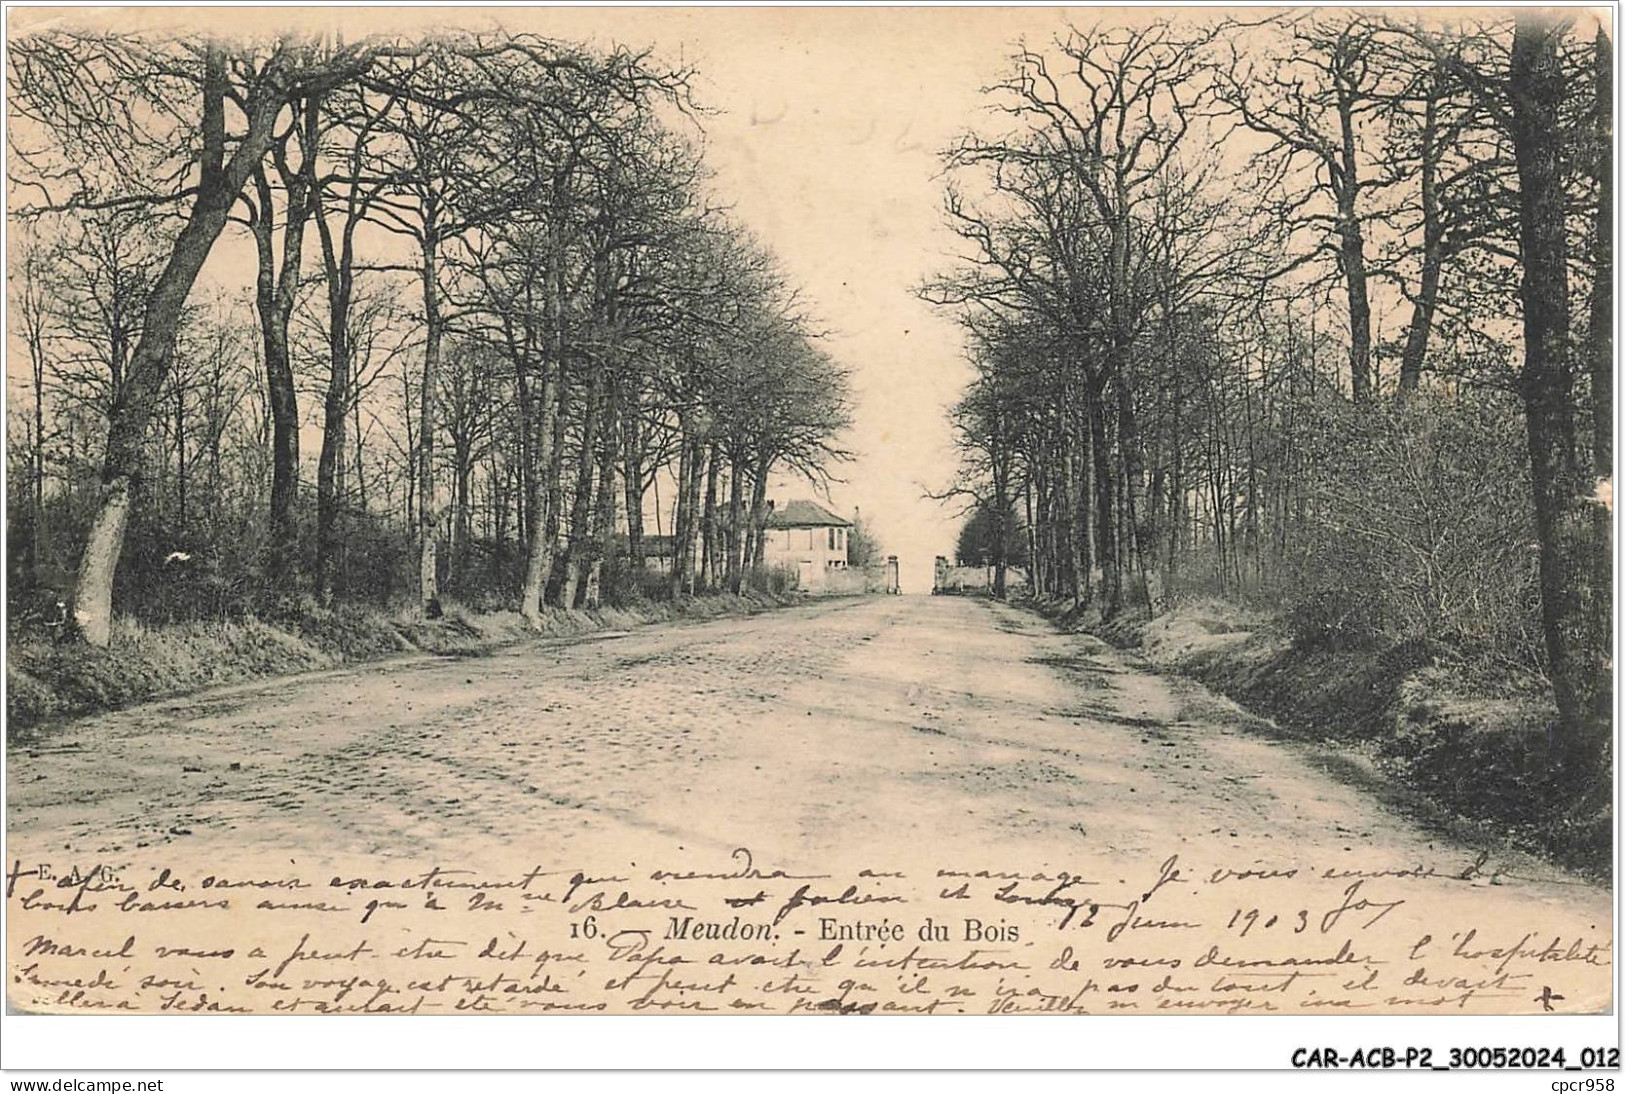 E. A. G.
+ afin de savoir exactement qui viendra au mariage. Je vous envoie de
bons baisers ainsi qu'à Mme Blaise et Julien et
16. - Meudon. - Entrée du Bois
12 Juin 1903
Marcel vous a peut-etre dit que Papa avait l'intention de vous demander l'hospitalité
Samedi soir. Son voyage est retardé et peut etre qu'il n'ira pas du tout. il devait
aller à Sedan et aurait été vous voir en passant. Veuillez m'envoyer un mot +
CAR-ACB-P2_30052024_012
www.delcampe.net
cpcr958